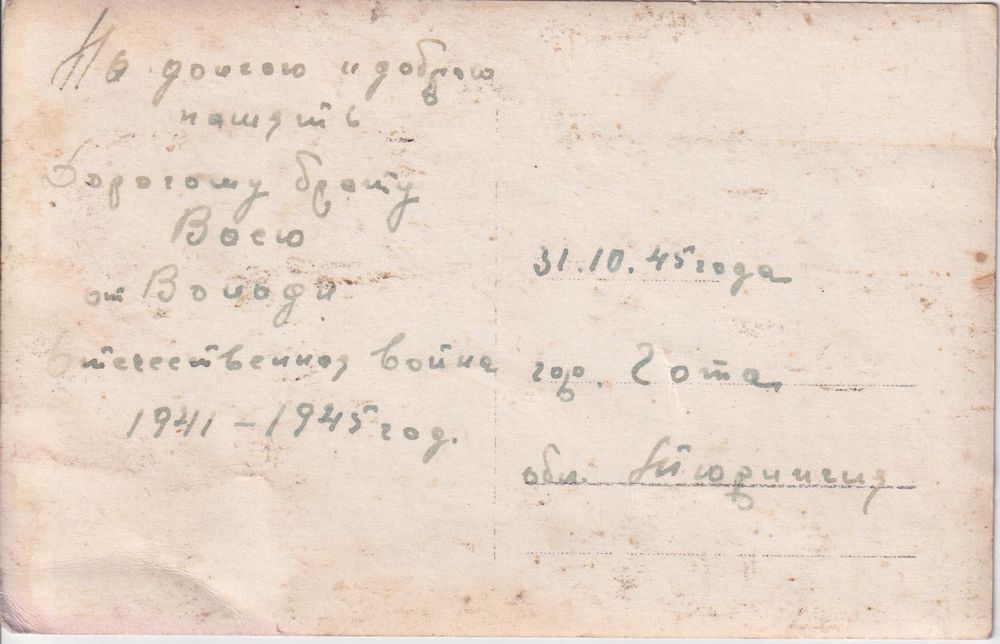 На долгою и доброю
память
Дорогому брату
Васю
от Володи
Отечественная война
1941 – 1945 год.
31.10.45 года
гор. Гота
обл. Тюрингия